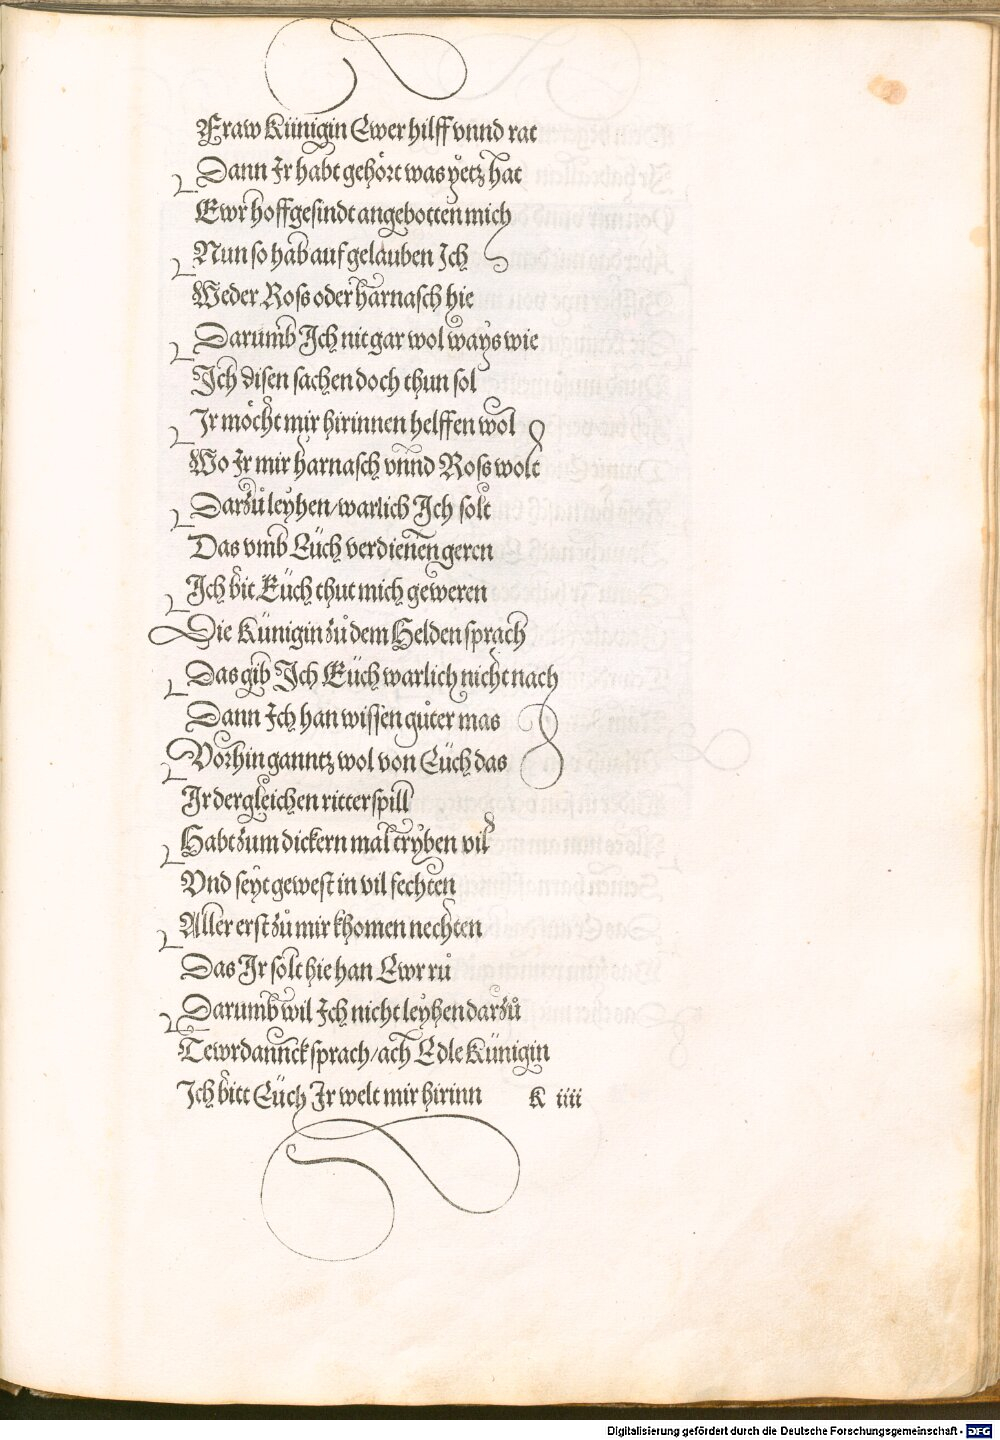 Fraw Künigin Ewer hilff vnnd rat
Dann Ir habt gehört was yetz hat
Ewr hoffgesindt angebotten mich
Nun so hab auf gelauben Ich
Weder Ross oder harnasch hie
Darumb Ich nit gar wol ways wie
Ich disen sachen doch thun sol
Ir möcht mir hirinnen helffen wol
Wo Ir mir harnasch vnnd Ross wolt
Darzů leyhen/warlich Ich solt
Das vmb Eüch verdienen geren
Ich bit Eüch thut mich geweren
Die Künigin zů dem Helden sprach
Das gib Ich Eüch warlich nicht nach
Dann Ich han wissen gůter mas
Vorhin ganntz wol von Eüch das
Ir dergleichen ritterspill
Habt zum dickern mal tryben vil
Vnd seyt gewest in vil fechten
Aller erst zů mir khomen nechten
Das Ir solt hie han Ewr rů
Darumb wil Ich nicht leyhen darzů
Tewrdannck sprach/ach Edle Künigin
Ich bitt Eüch Ir welt mir hirinn K iiii
Digitalisierung gefördert durch die Deutsche Forschungsgemeinschaft - DFG